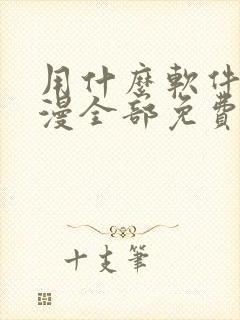 用什麼軟件
漫全部免費
十支筆